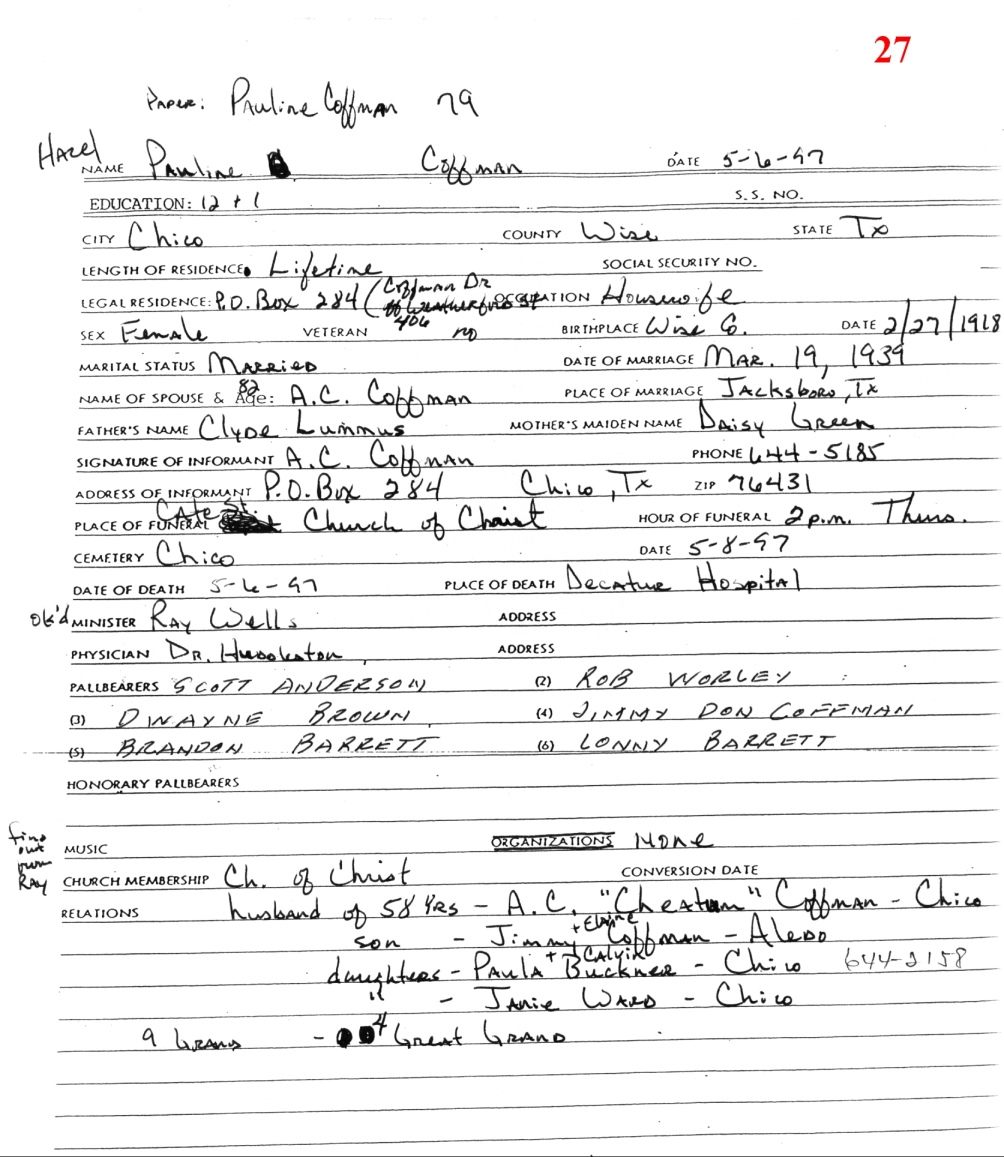 27
PAPER: Pauline Coffman 79
Hazel
NAME Pauline Coffman DATE 5-6-97
EDUCATION: 12 + 1 S.S. NO.
CITY Chico COUNTY Wise STATE Tx
LENGTH OF RESIDENCE Lifetime SOCIAL SECURITY NO.
LEGAL RESIDENCE: P.O. Box 284 (Coffman Dr off Weatherford St 406 OCCUPATION Housewife
SEX Female VETERAN no BIRTHPLACE Wise Co. DATE 2/27/1918
MARITAL STATUS MARRIED DATE OF MARRIAGE MAR. 19, 1939
NAME OF SPOUSE & Age: 82 A.C. Coffman PLACE OF MARRIAGE Jacksboro, Tx
FATHER'S NAME Clyde Lummus MOTHER'S MAIDEN NAME Daisy Green
SIGNATURE OF INFORMANT A.C. Coffman PHONE 644-5185
ADDRESS OF INFORMANT P.O. Box 284 Chico, Tx ZIP 76431
PLACE OF FUNERAL Cate St. Church of Christ HOUR OF FUNERAL 2 p.m. Thurs.
CEMETERY Chico DATE 5-8-97
DATE OF DEATH 5-6-97 PLACE OF DEATH Decature Hospital
ok'd MINISTER Ray Wells ADDRESS
PHYSICIAN DR. ADDRESS
PALLBEARERS SCOTT ANDERSON (2) ROB WORLEY
(3) DWAYNE BROWN (4) JIMMY DON COFFMAN
(5) BRANDON BARRETT (6) LONNY BARRETT
HONORARY PALLBEARERS
find out from Ray
MUSIC ORGANIZATIONS None
CHURCH MEMBERSHIP Ch. of Christ CONVERSION DATE
RELATIONS husband of 58 yrs - A.C. "Cheatum" Coffman - Chico
son - Jimmy + Elaine Coffman - Aledo
daughters - Paula + Calvin Buckner - Chico 644-2158
" - Janie Ward - Chico
9 Grand - 4 Great Grand